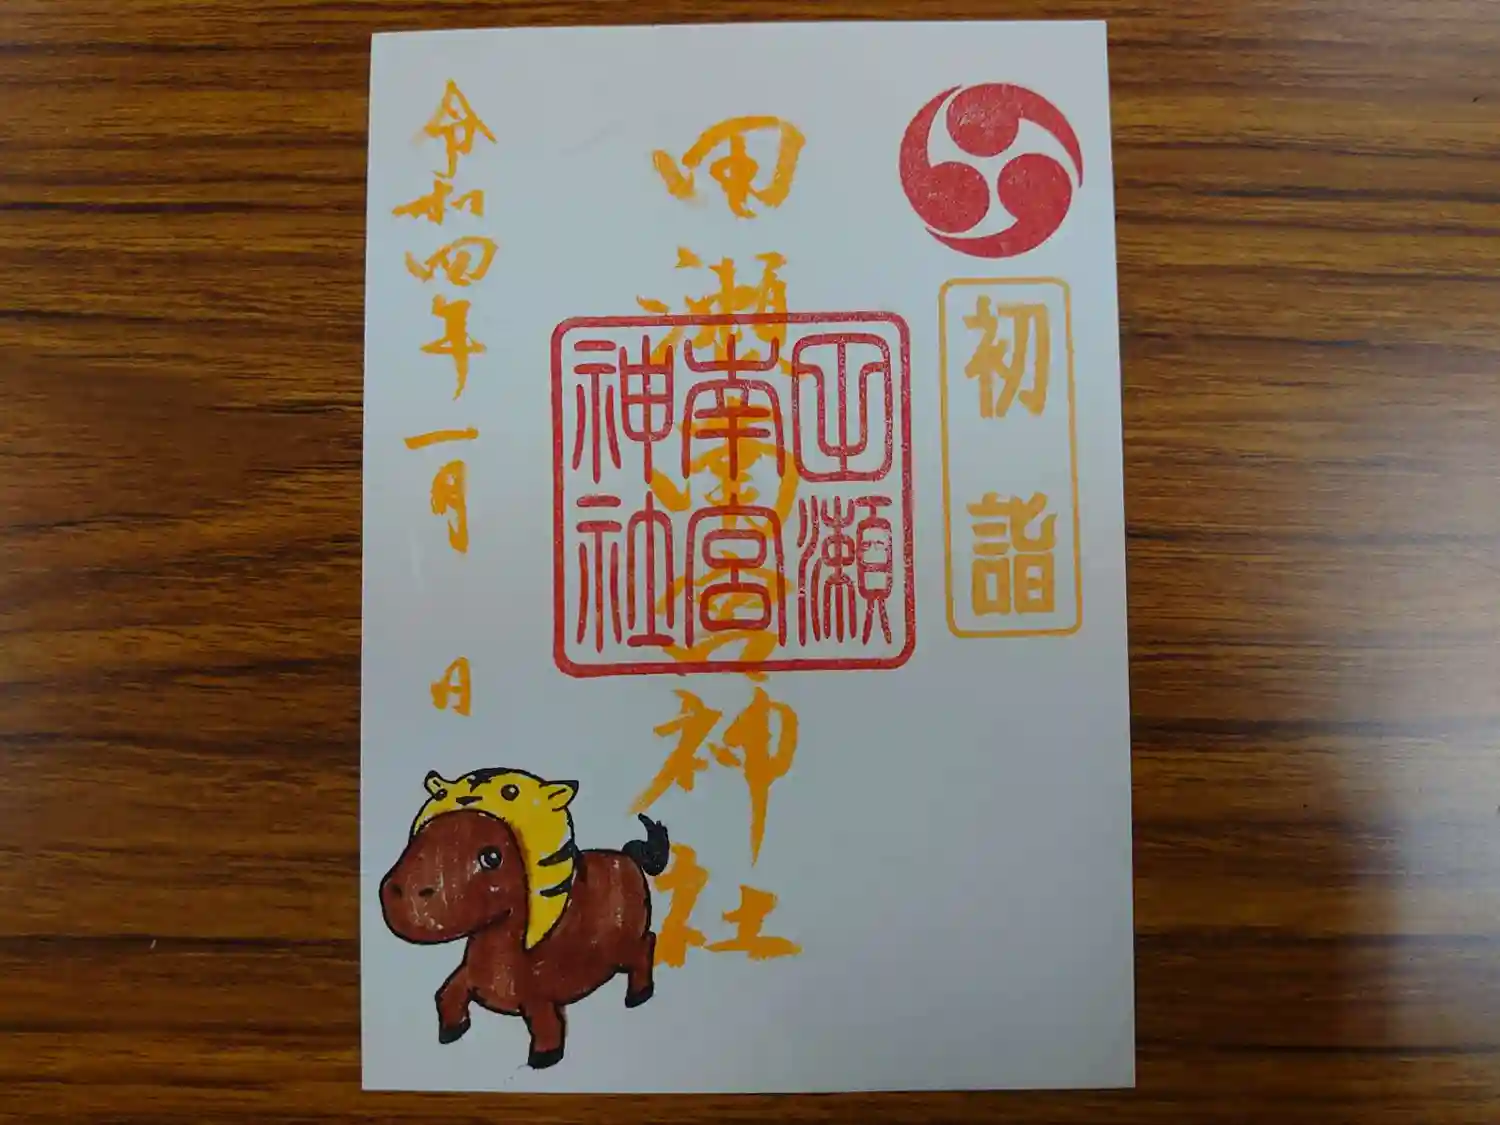 初詣
田瀬南宮神社
田瀬
南宮
神社
令和四年一月 日